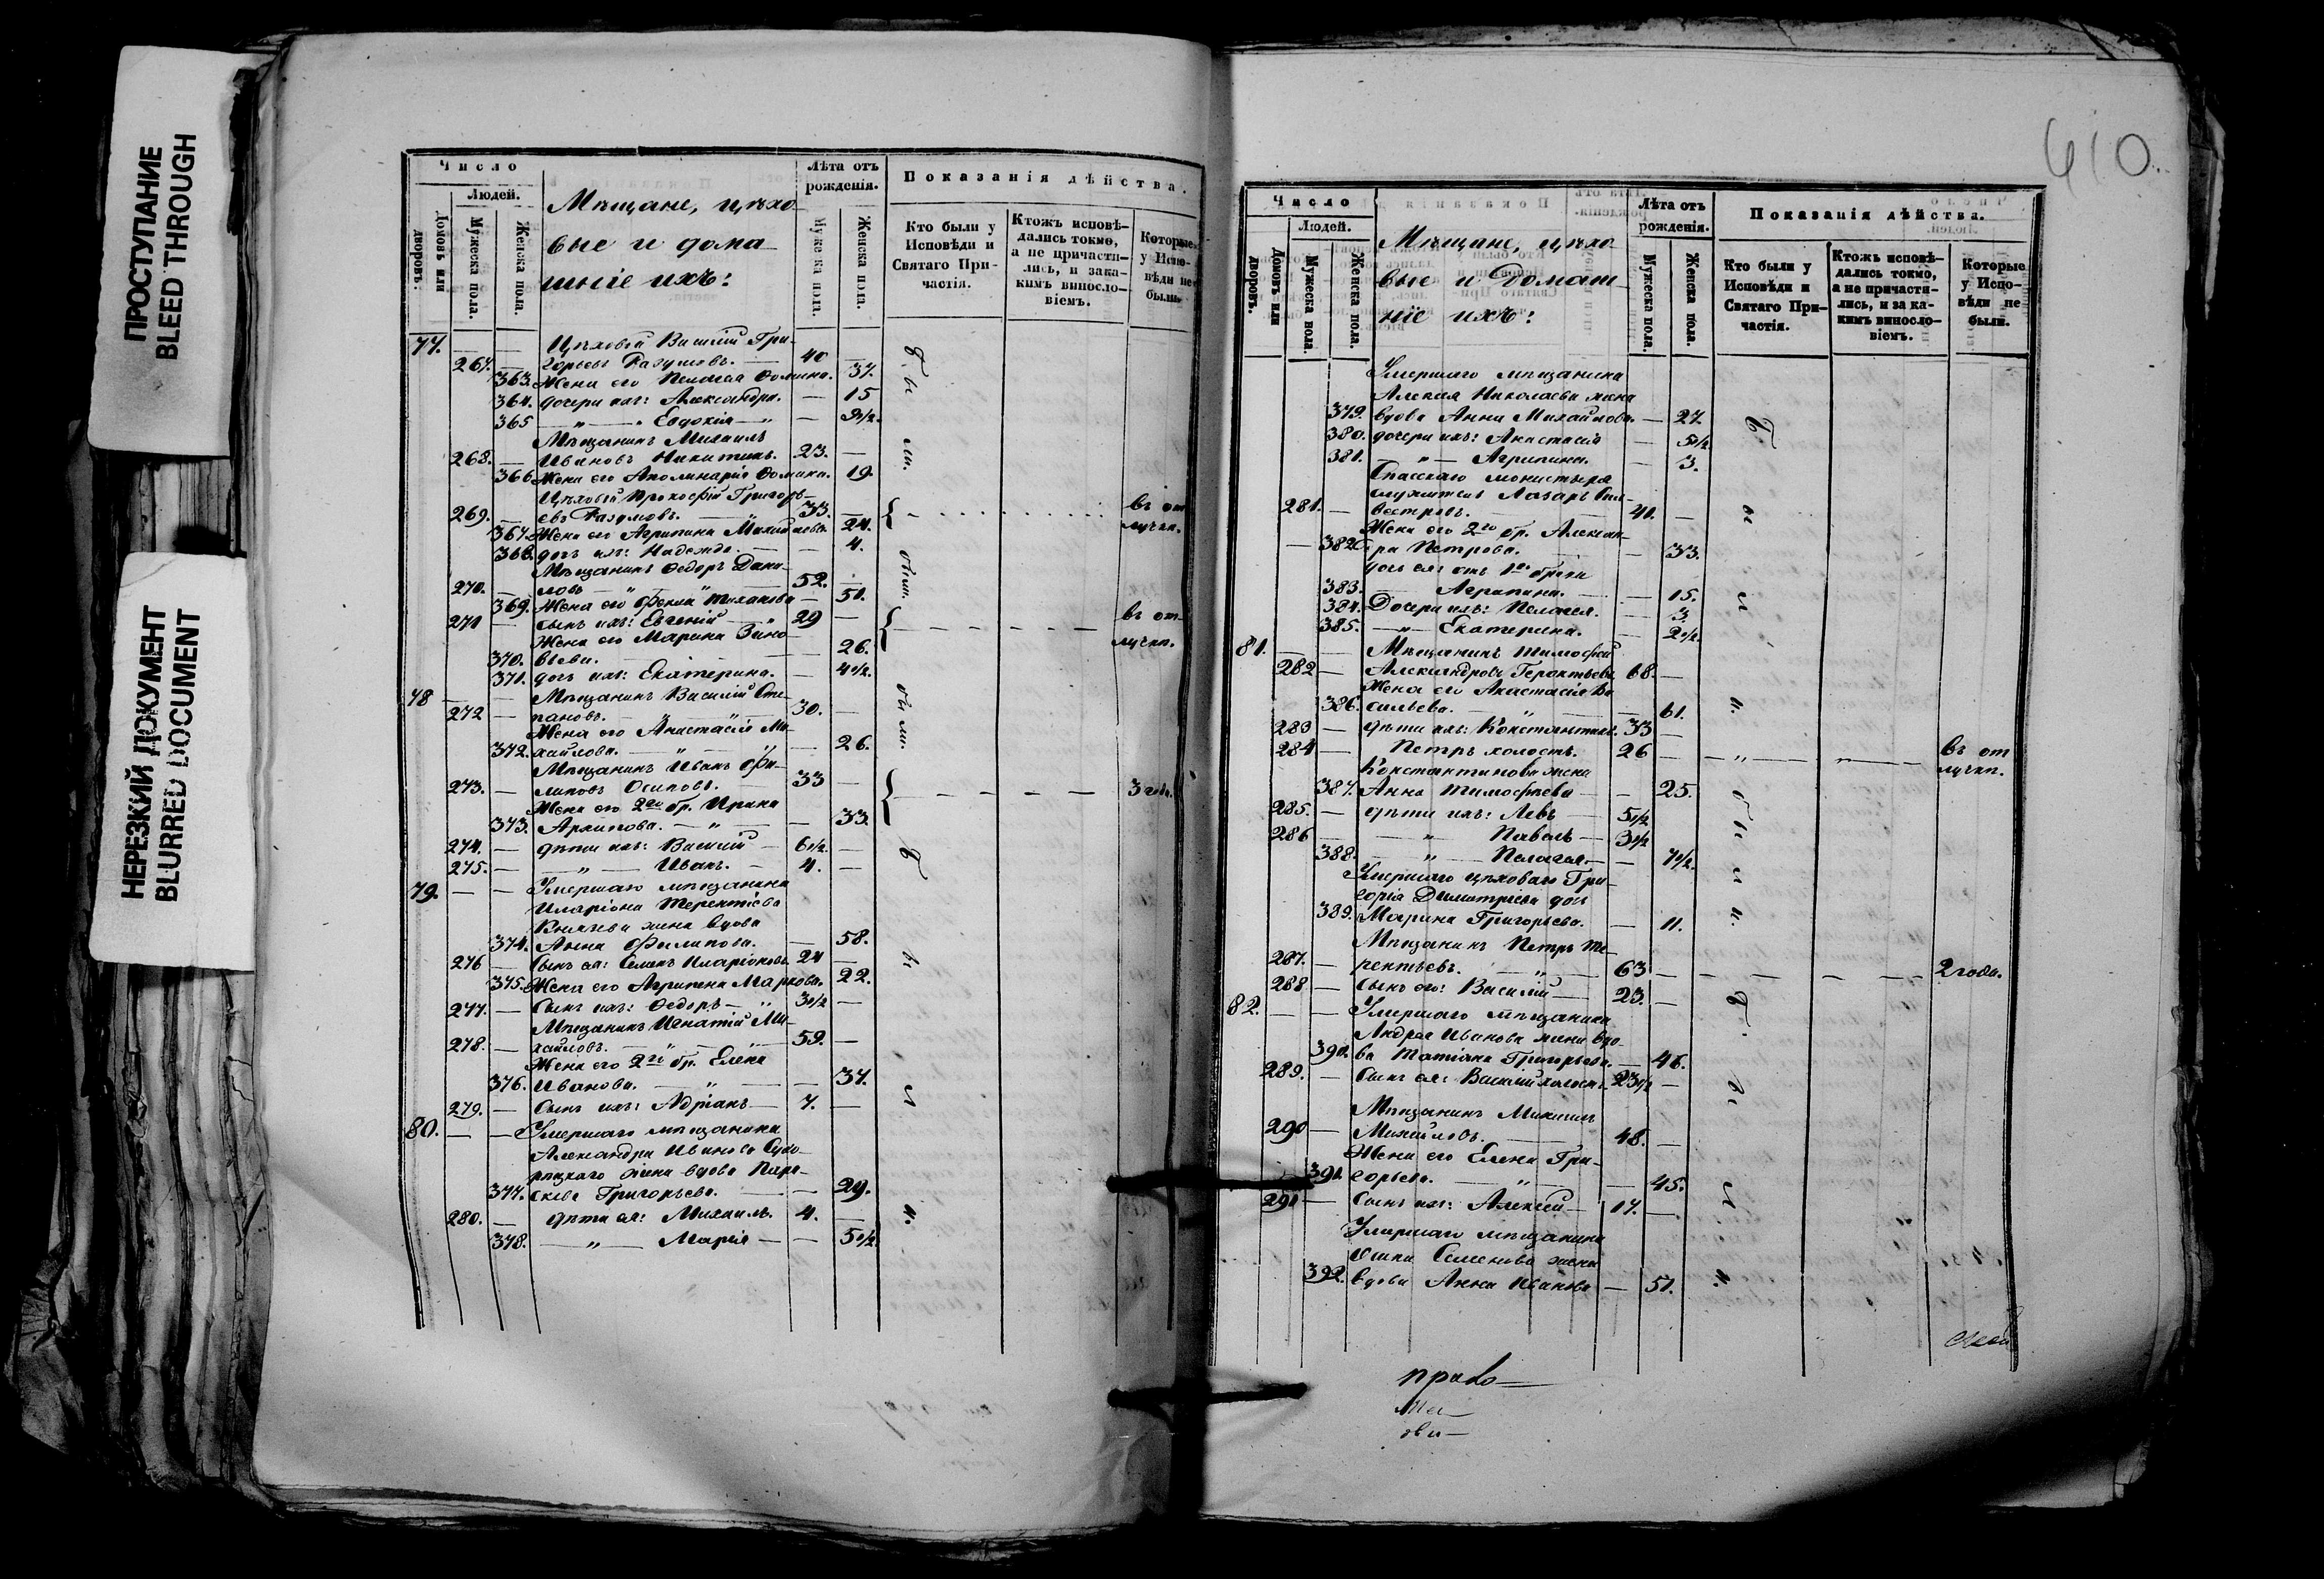 ПРОСТУПАНИЕ
BLEED THROUGH
НЕРЕЗКИЙ ДОКУМЕНТ
BLURRED DOCUMENT
Число
Людей.
Домовъ или дворовъ.
Мужеска пола.
Женска пола.
Мѣщане, цѣхо
вые и дома
шніе ихъ:
Лѣта отъ рожденія.
Мужеска пола.
Женска пола.
Показанія дѣйства.
Кто были у Исповѣди и Святаго Причастія.
Ктожъ исповѣдались токмо, а не причастились, и за какимъ винословіемъ.
Которые у Исповѣди не были.
77. — — Цѣховой Василій Гри-
267. — горьевъ Разумовъ. — 40 —
363. Жена его Пелагея Фомина. 37.
364. дочери ихъ: Александра. — 15
365 — " — Евдокія — "
Мѣщанинъ Михаилъ
268. — Ивановъ Никитинъ. 23. —
366 Жена его Аполинарія Фомина. 19.
Цѣховой Прокофій Григорь-
269. — евъ Разумовъ. — 33. — въ от
367. Жена его Агрипина 24. лучкѣ.
368. дочь ихъ: Надежда. — — 4.
Мѣщанинъ Федоръ Дани-
270. — ловъ — " — 52. —
369. Жена его Фекла — 51.
271 — сынъ ихъ: Евгеній — 29 — въ от
Жена его Марина Зино
370. вьева. — 26. лучкѣ.
371. дочь ихъ: Екатерина. — 4 1/2.
78 — — Мѣщанинъ Василій Сте-
272 — пановъ. — 30. —
Жена его Анастасія Ми-
372. хайлова. — " — — 26.
Мѣщанинъ Иванъ Фи-
273. — липовъ Осиповъ. — 33 — 3 года.
Жена его 2го бр. Ирина
373. Архипова. — " — — 33.
274. — дѣти ихъ: Василій — 6 1/2. —
275. — — " — Иванъ. — 4. —
79. — — Умершаго мѣщанина
Иларіона Терентіева
Князева жена вдова
374. Анна Филипова. — 58.
276 — Сынъ ея: Семенъ Иларіоновъ 24 —
375. Жена его Агрипена Маркова. 22.
277. — Сынъ ихъ: Федоръ — " 3 1/2 —
Мѣщанинъ Игнатій Ми-
278. — хайловъ. — " — 59. —
Жена его 2го бр. Елена
376. Иванова. — " — — 37.
279. — Сынъ ихъ: Адріанъ — 7. —
80. — — Умершаго мѣщанина
Александра Иванова
жена вдова Пара-
377. скева Григорьева. — — 29.
280. — дѣти ея: Михаилъ. 4. —
378. — " — Марія — — 5 1/2.
610
Число
Людей.
Домовъ или дворовъ.
Мужеска пола.
Женска пола.
Мѣщане, цѣхо
вые и домаш
ніе ихъ:
Лѣта отъ рожденія.
Мужеска пола.
Женска пола.
Показанія дѣйства.
Кто были у Исповѣди и Святаго Причастія.
Ктожъ исповѣдались токмо, а не причастились, и за какимъ винословіемъ.
Которые у Исповѣди не были.
Умершаго мѣщанина
Алексія Николаева жена
379. вдова Анна Михайлова. — 27.
380. дочери ихъ: Анастасія — 5 1/2
381. — " — Агрипина. — 3.
Спасскаго монастыря
служитель Лазарь Сил-
281. — вестровъ. — 41. —
Жена его 2го бр. Алексан-
— 382. ра Петрова. — — 33.
дочь ея отъ 1го брака
383. — Агрипина. — — 15.
384. Дочери ихъ: Пелагея. — 3.
385. — " — Екатерина. — 2 1/2.
81. — — Мѣщанинъ Тимофей
282 — Александровъ 68. —
Жена его Анастасія Ва
386. сильева. — " — — 61.
283 — дѣти ихъ: Константинъ. 33 —
284 — Петръ холостъ. 26 — — " — " — въ от
Константинова жена лучкѣ.
387. Анна Тимофѣева — — 25.
285. — дѣти ихъ: Левъ — 5 1/2
286 — " Павелъ — 3 1/2
388. — " — Пелагея. — — 7 1/2.
Умершаго цѣховаго Гри-
горія Димитріева дочь
389. Марина Григорьева. — 11.
Мѣщанинъ Петръ Те-
287. — рентьевъ. — " — 63 — — — — — 2 года.
288 — Сынъ его: Василій — 23. —
82. — — Умершаго мѣщанина
Андрея Иванова жена вдо-
390. ва Татіана Григорьева. — 46.
289. — Сынъ ея: Василій холостъ. 23 1/2 —
Мѣщанинъ Михаилъ
290 — Михайловъ. — 48. —
Жена его Елена Гри-
391. горьева. — " — — 45.
291 — Сынъ ихъ: Алексій — 17. —
Умершаго мѣщанина
Семенова жена
392. вдова Анна Иванова — 51.